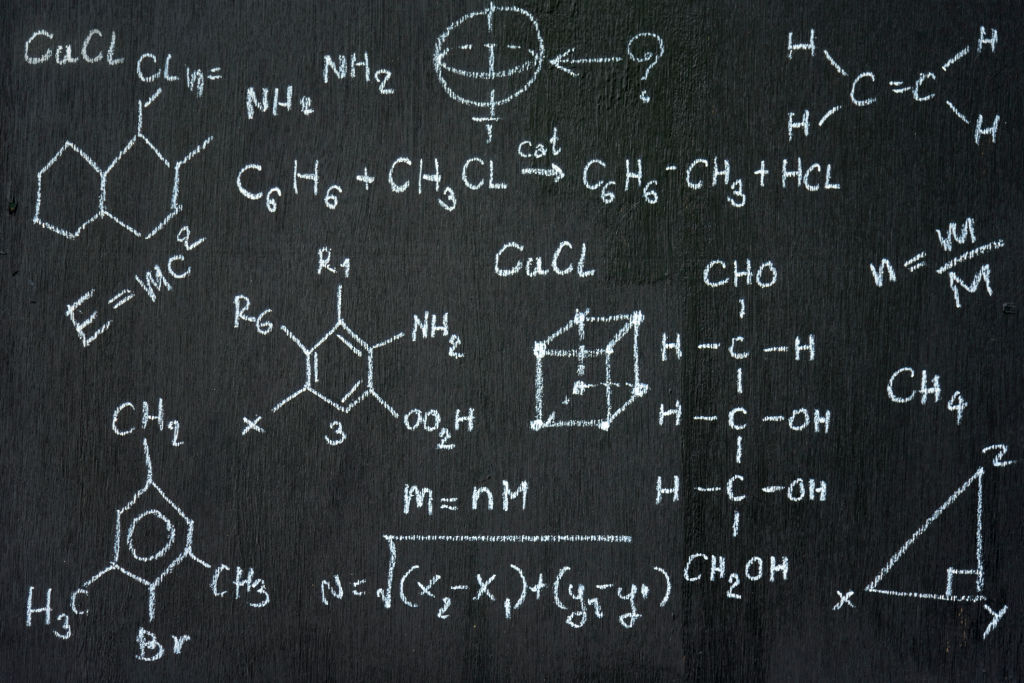 CaCL
CLn=
NH2
NH2
?
H H
C=C
H H
C6H6+CH3CL cat → C6H6-CH3+HCL
E=mc2
n=m/M
CaCL
R1
R6
NH2
X
3
OO2H
CHO
H-C-H
H-C-OH
H-C-OH
CH2OH
CH4
CH2
H3C
CH3
Br
m=nM
N=√(x2-x1)+(y2-y1)
z
x
y